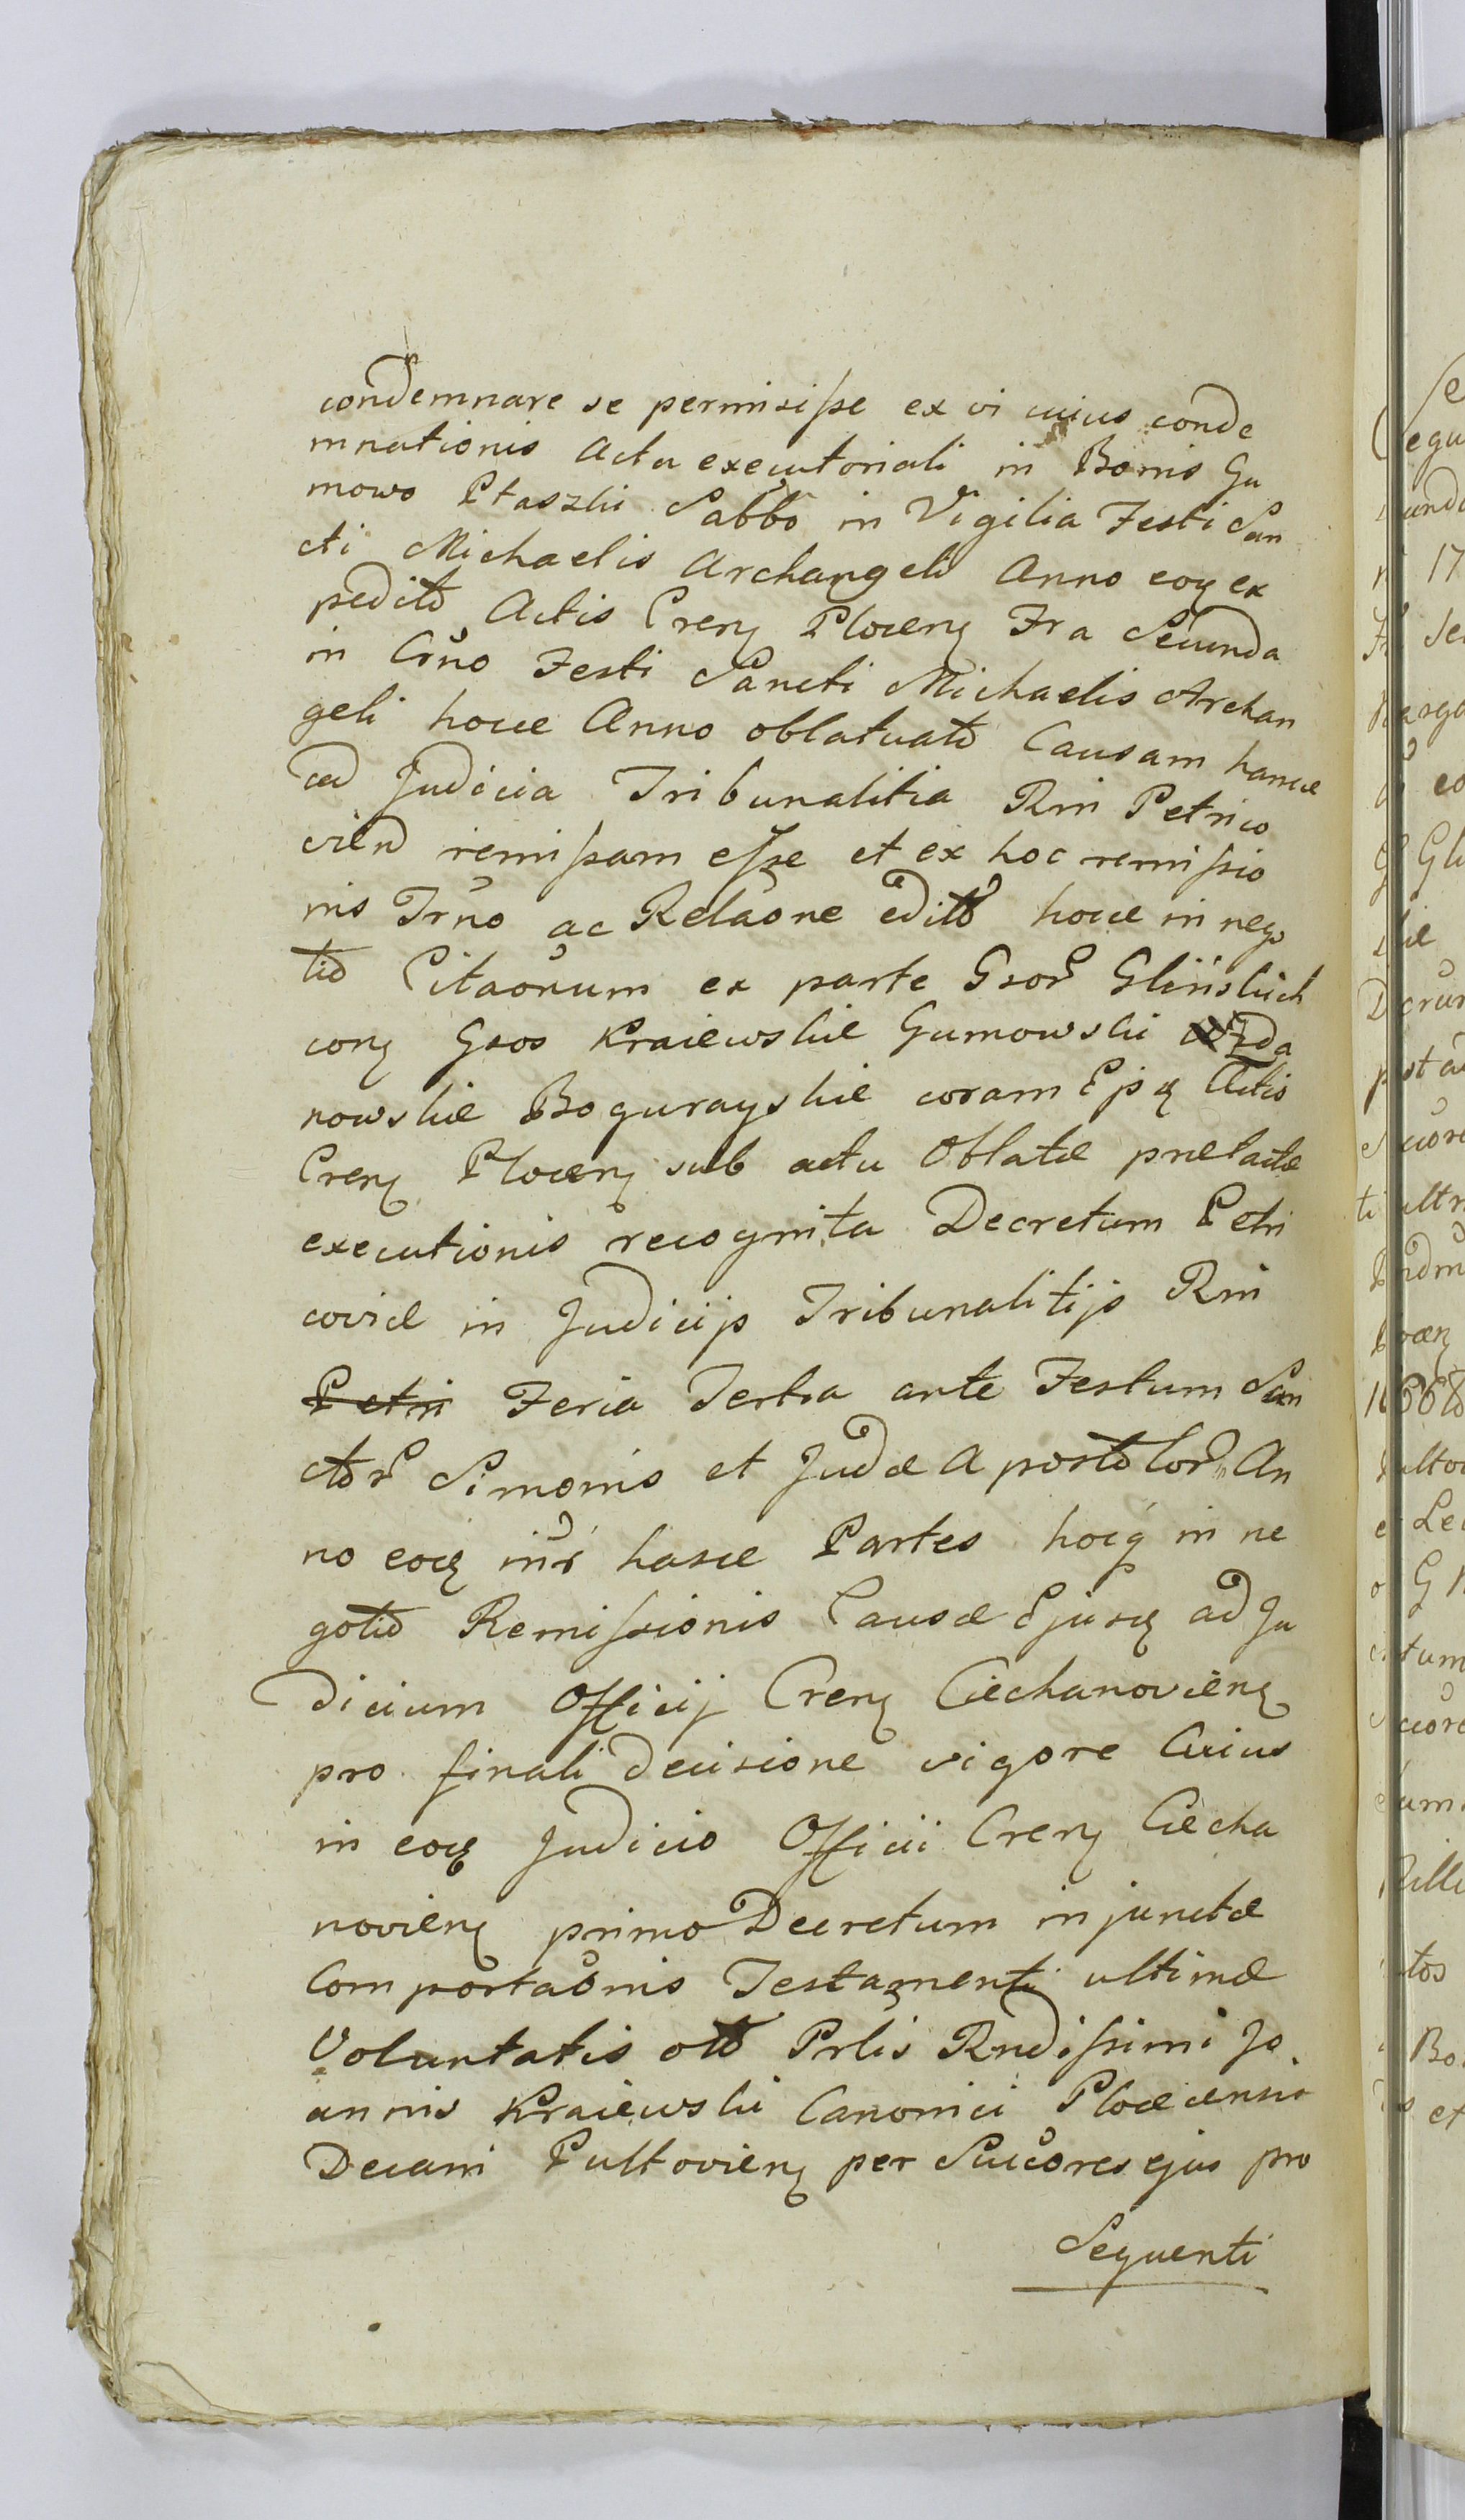 condemnare se permisisse ex vi cuius conde
mnationis Actu executoriali in Bonis Gu
mowo Ptaszki Sabbo in Vigilia Festi San
cti Michaelis Archangeli Anno eoq ex
pedito Actis Crenq Plocenq Fra Secunda
in Crno Festi Sancti Michaelis Archan
geli hocce Anno oblatuato Causam hancce
ad Judicia Tribunalitia Rni Petrico
vien remissam esse et ex hoc remissio
nis Trno ac Relaone edito hocce in nego
tio Citaonum ex parte Gsor Glińskich
conq Gsos Kraiewskie Gumowski Zda
nowskie Bogurayskie coram Ejsq Actis
Crenq Plocenq sub actu Oblatæ prætactæ
executionis recognita Decretum Petri
coviæ in Judicijs Tribunalitijs Rni
Petri Feria Tertia ante Festum San
ctor Simonis et Judæ Apostolor An
no eoq intr hasce Partes hocq in ne
gotio Remissionis Causæ Ejusq ad Ju
dicium Officij Crenq Ciechanovienq
pro finali decisione vigore Cuius
in eoq Judicio Officii Crenq Ciecha
novienq primo Decretum injunctæ
Comportaonis Testamenti ultimæ
Voluntatis oto Prlis Rndissimi Jo
annis Kraiewski Canonici Plocecensis
Decani Pultovienq per Succores ejus pro
Sequenti